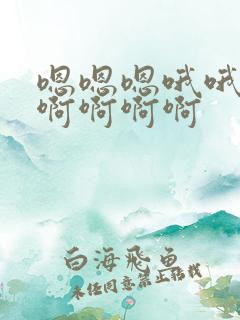 嗯嗯嗯哦哦
啊啊啊啊
白海飞鱼
未经同意禁止转载